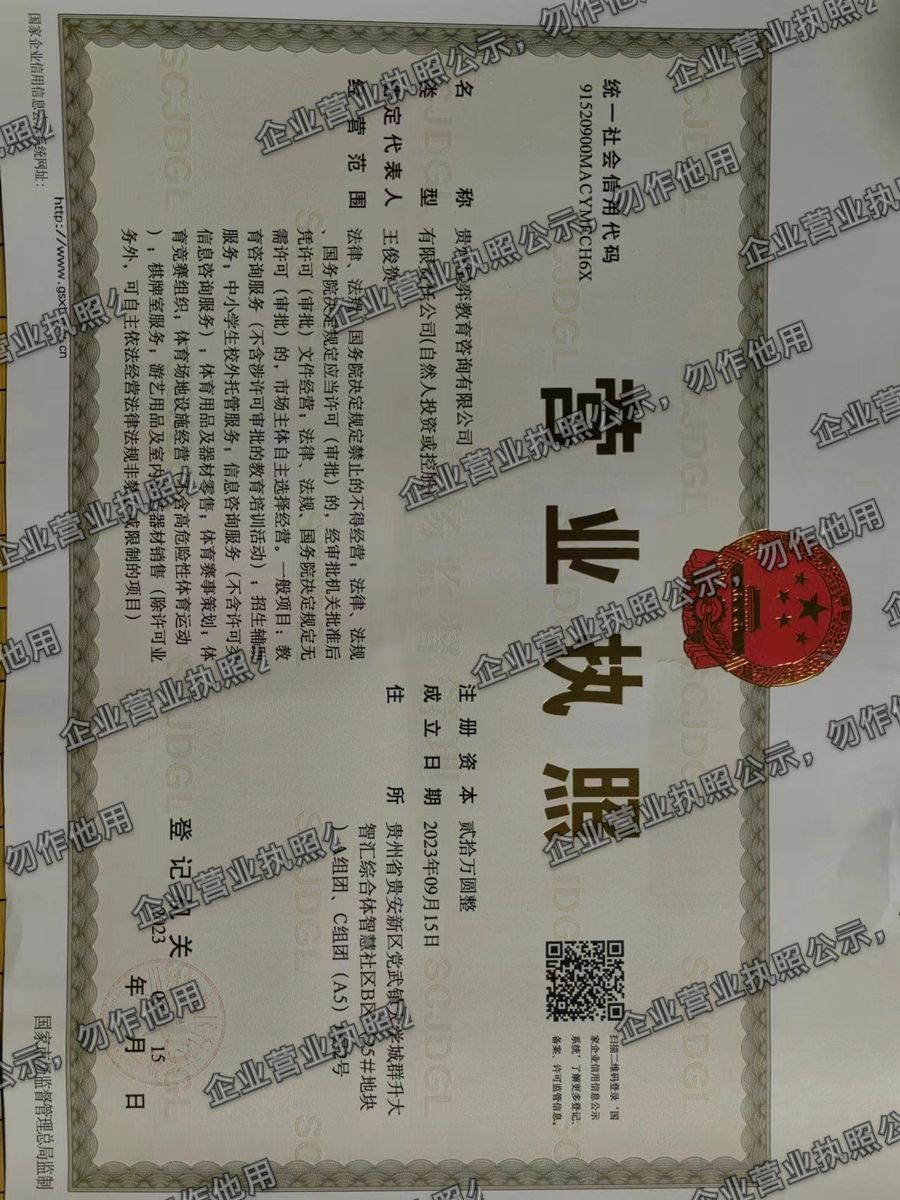 统一社会信用代码
营业执照
扫描二维码登录‘国
家企业信用信息公示
系统’了解更多登记、
备案、许可监管信息。
名称
教育咨询有限公司
类型 有限责任公司(自然人投资或控股)
法定代表人 王俊
经营范围 法律、法规、国务院决定规定禁止的不得经营；法律、法规
、国务院决定规定应当许可（审批）的，经审批机关批准后
凭许可（审批）文件经营；法律、法规、国务院决定规定无
需许可（审批）的，市场主体自主选择经营。一般项目：教
育咨询服务（不含涉许可审批的教育培训活动）；招生辅助
服务；中小学生校外托管服务；信息咨询服务（不含许可类
信息咨询服务）；体育用品及器材零售；体育赛事策划；体
育竞赛组织；体育场地设施经营（不含高危险性体育运动
）；棋牌室服务；游艺用品及室内 器材销售（除许可业
务外，可自主依法经营法律法规非禁止或限制的项目）
注册资本 贰拾万圆整
成立日期 2023年09月15日
住所 贵州省贵安新区党武镇大学城群升大
智汇综合体智慧社区B区 地块
组团、C组团（A5） 号
登记机关
2023 年 月 15 日
国家企业信用信息公示系统网址：
http://www.gsxt.gov.cn
国家市场监督管理总局监制
企业营业执照公示，勿作他用